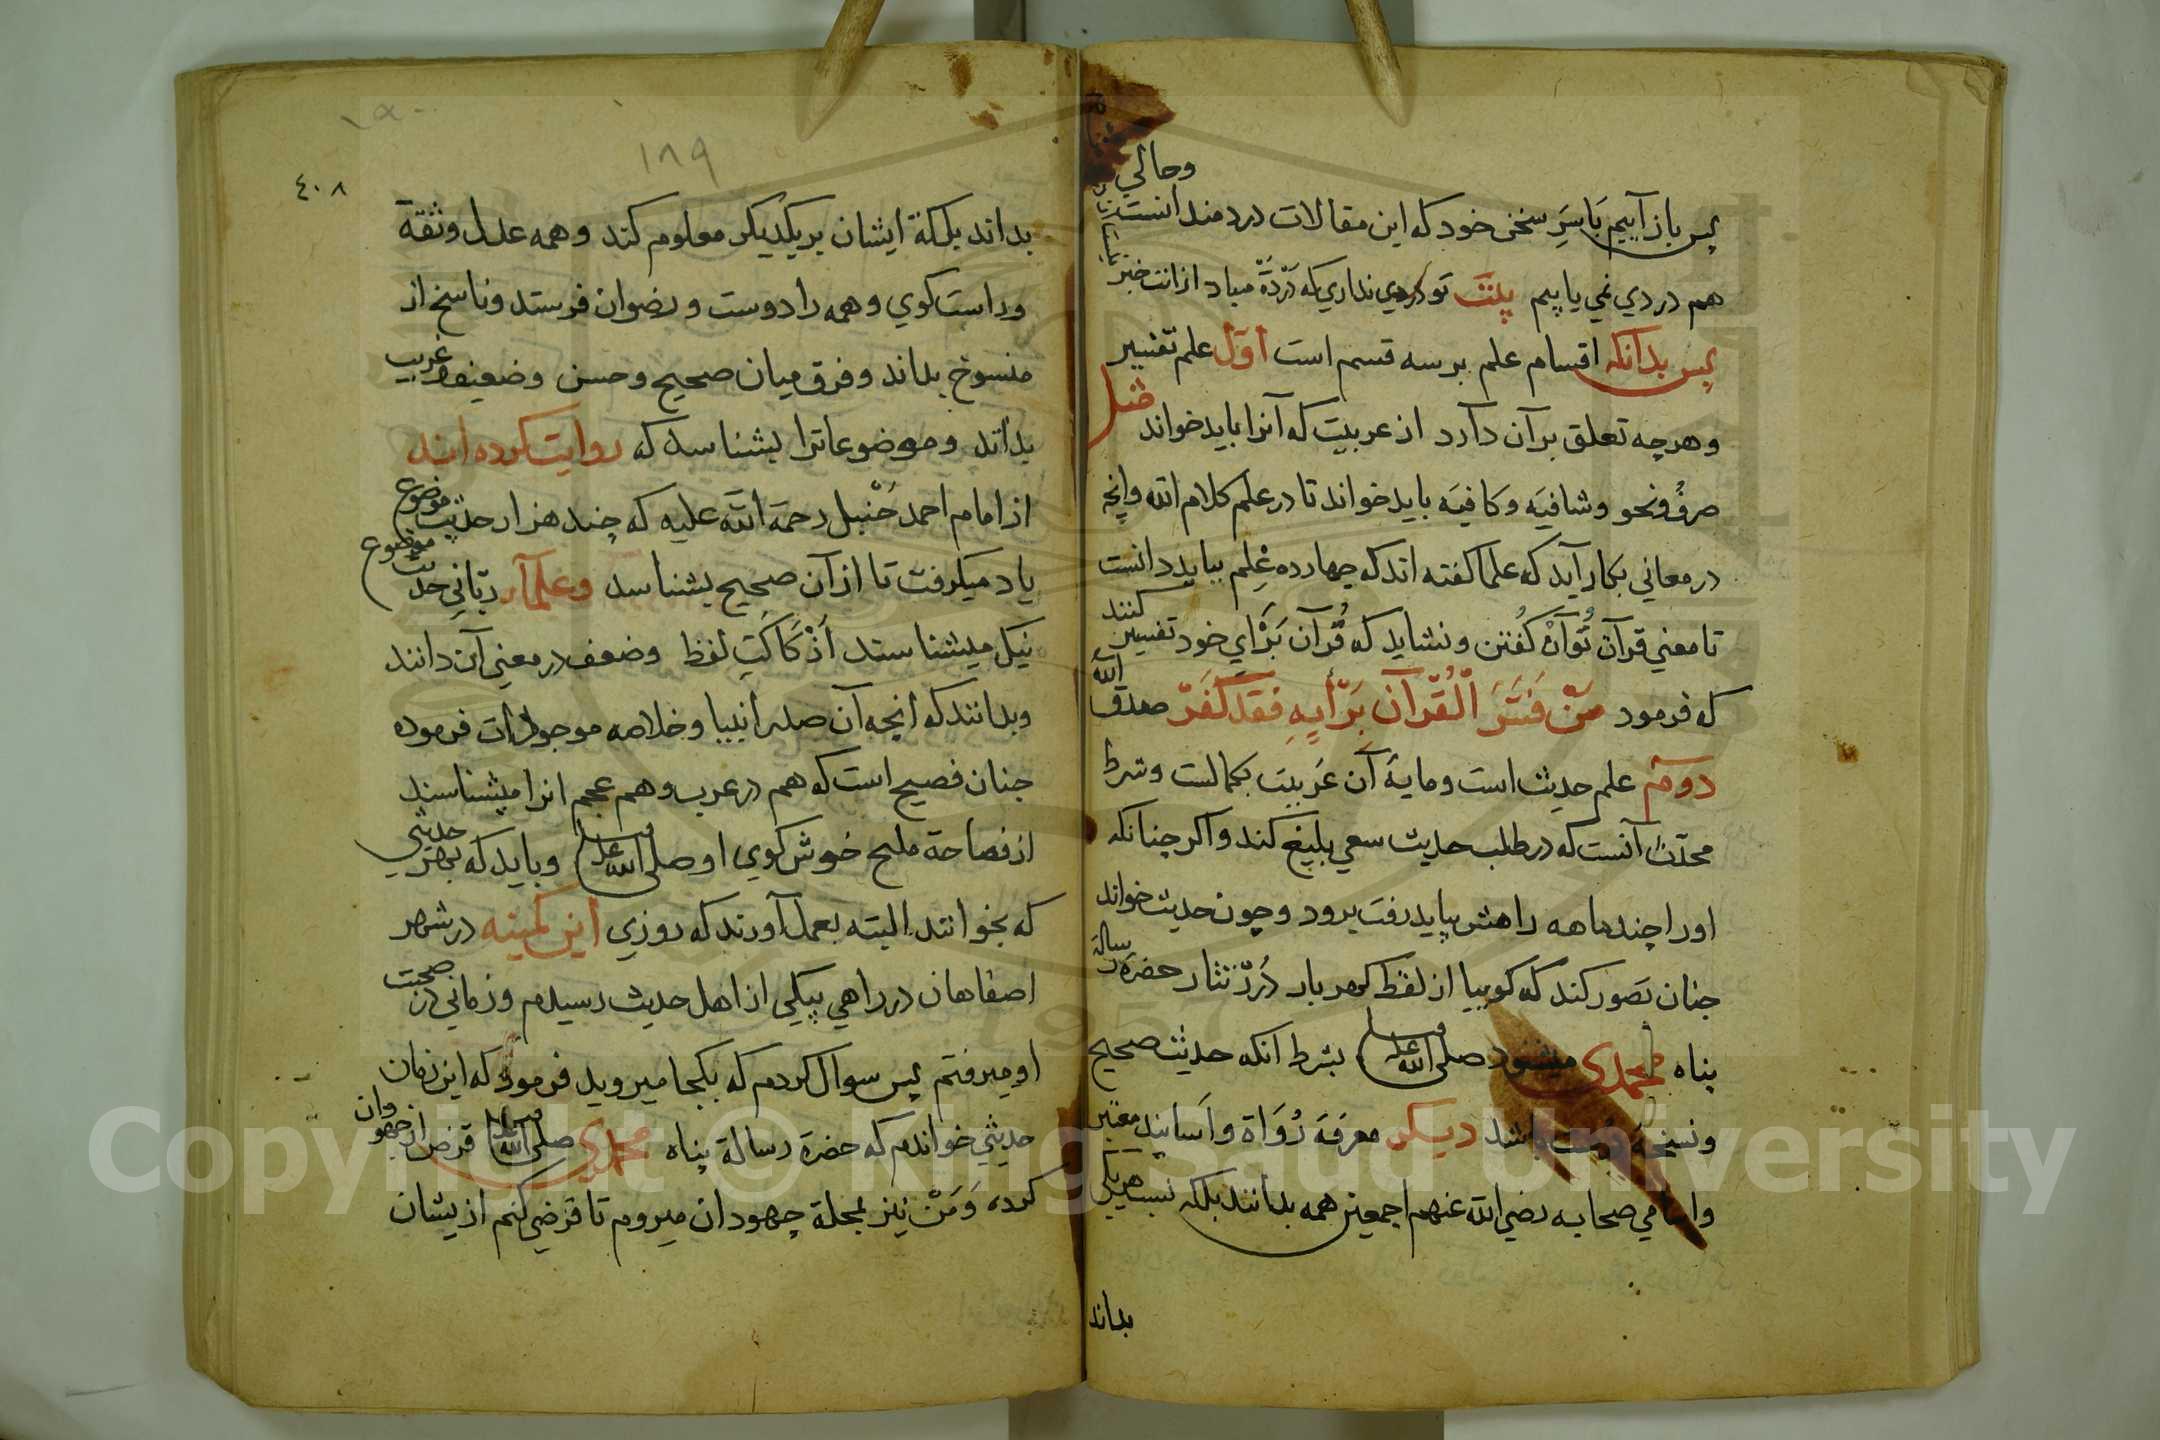 وحالي
پس باز آییم بَاسَرِ سخنن خود که این مقالات درد مندانست
هم دردي نمي یا پیم پلتَ تو دردي نداري که دَردَهْ مباد ازانت خبر
پس بدانکه اقسام علم بر سه قسم است اوّل علم تفسیر
وهرچه تعلق بر آن دارد از عربیت که آنرا باید خواند مثل
صرفْ ونحو وشافیَه وکافیَه باید خواند تا در علم کلام الله وانچه
در معاني بکار آید که علما کفته اند که چهارده عْلِم بباید دانست
تا معني قرآن تُوآنْ کُفتن ونشاید که قُرآن بَرْايِ خود تفسیر کنند
که فرمود مَنْ فَسَّرَ الْقُرآن بِرَأیِهِ فَقَدْ کَفَرَ صدق الله
دوّم علم حدیث است ومایهٔ آن عَربیت بکمالست وشرط
محدّث آنست که در طلب حدیث سعي بلیغ کند واکر چنانکه
اورا چند ماهه راهش بباید رفت برود وچون حدیث خواند
چنان تصور کند که کوییا از لفظ کهر بار دُرّ نثار حضرة رسالة
پناه محمدي میشنود صلى الله علیه وسلم بشرط انکه حدیث صحیح
ونسخهٔ درست باشد دیکر معرفَة رُوَاة واَسانید معتبر
واسامي صحابه رضي الله عنهم اجمعین همه بدانند بلکه نسب هریکي
بداند
١٨٩
٤٠٨
بداند بلکهٔ ایشان بر یکدیکر معلوم کند وهمه عدل وثقة
وراست کوي وهمه را دوست ورضوان فرستد وناسخ از
منسوخ بداند وفرق میان صحیح وحسن وضعیف وغریب
بداند وموضوعاترا بشناسد که روایت کرده اند
از امام احمد حَنْبل رحمَه الله علیه که چند هزار حدیث موضوع
یاد میکرفت تا از آن صحیح بشناسد وعلمآء ربّاني حدیث موضوع
نیک میشناسند اَزْ کَاکَتِ لفظ وضعف در معني آن دانند
وبدانند که انچه آن صدر انبیا وخلاصه موجودات فرموده
چنان فصیح است که هم در عرب وهم عجم انرا میشناسند
از فصاحة ملیح خوش کوي او صلى الله علیه وسلم وباید که بهر حدیثي
که بخوانند البته بعمل آورند که روزي این کمینه در شهر
اصفاهان در راهي بیکي از اهل حدیث رسیدم وزماني در صحبت
او میرفتم پس سوال کردم که بکجا میروید فرمود که این زمان
حدیثي خواندم که حضرة رسالة پناه محمدي صلى الله علیه وسلم قرض از جهودان
کرده وَمَنْ نیز بمحلة جهودان میروم تا قرضي کنم از یشان
Copyright © King Saud University
1957